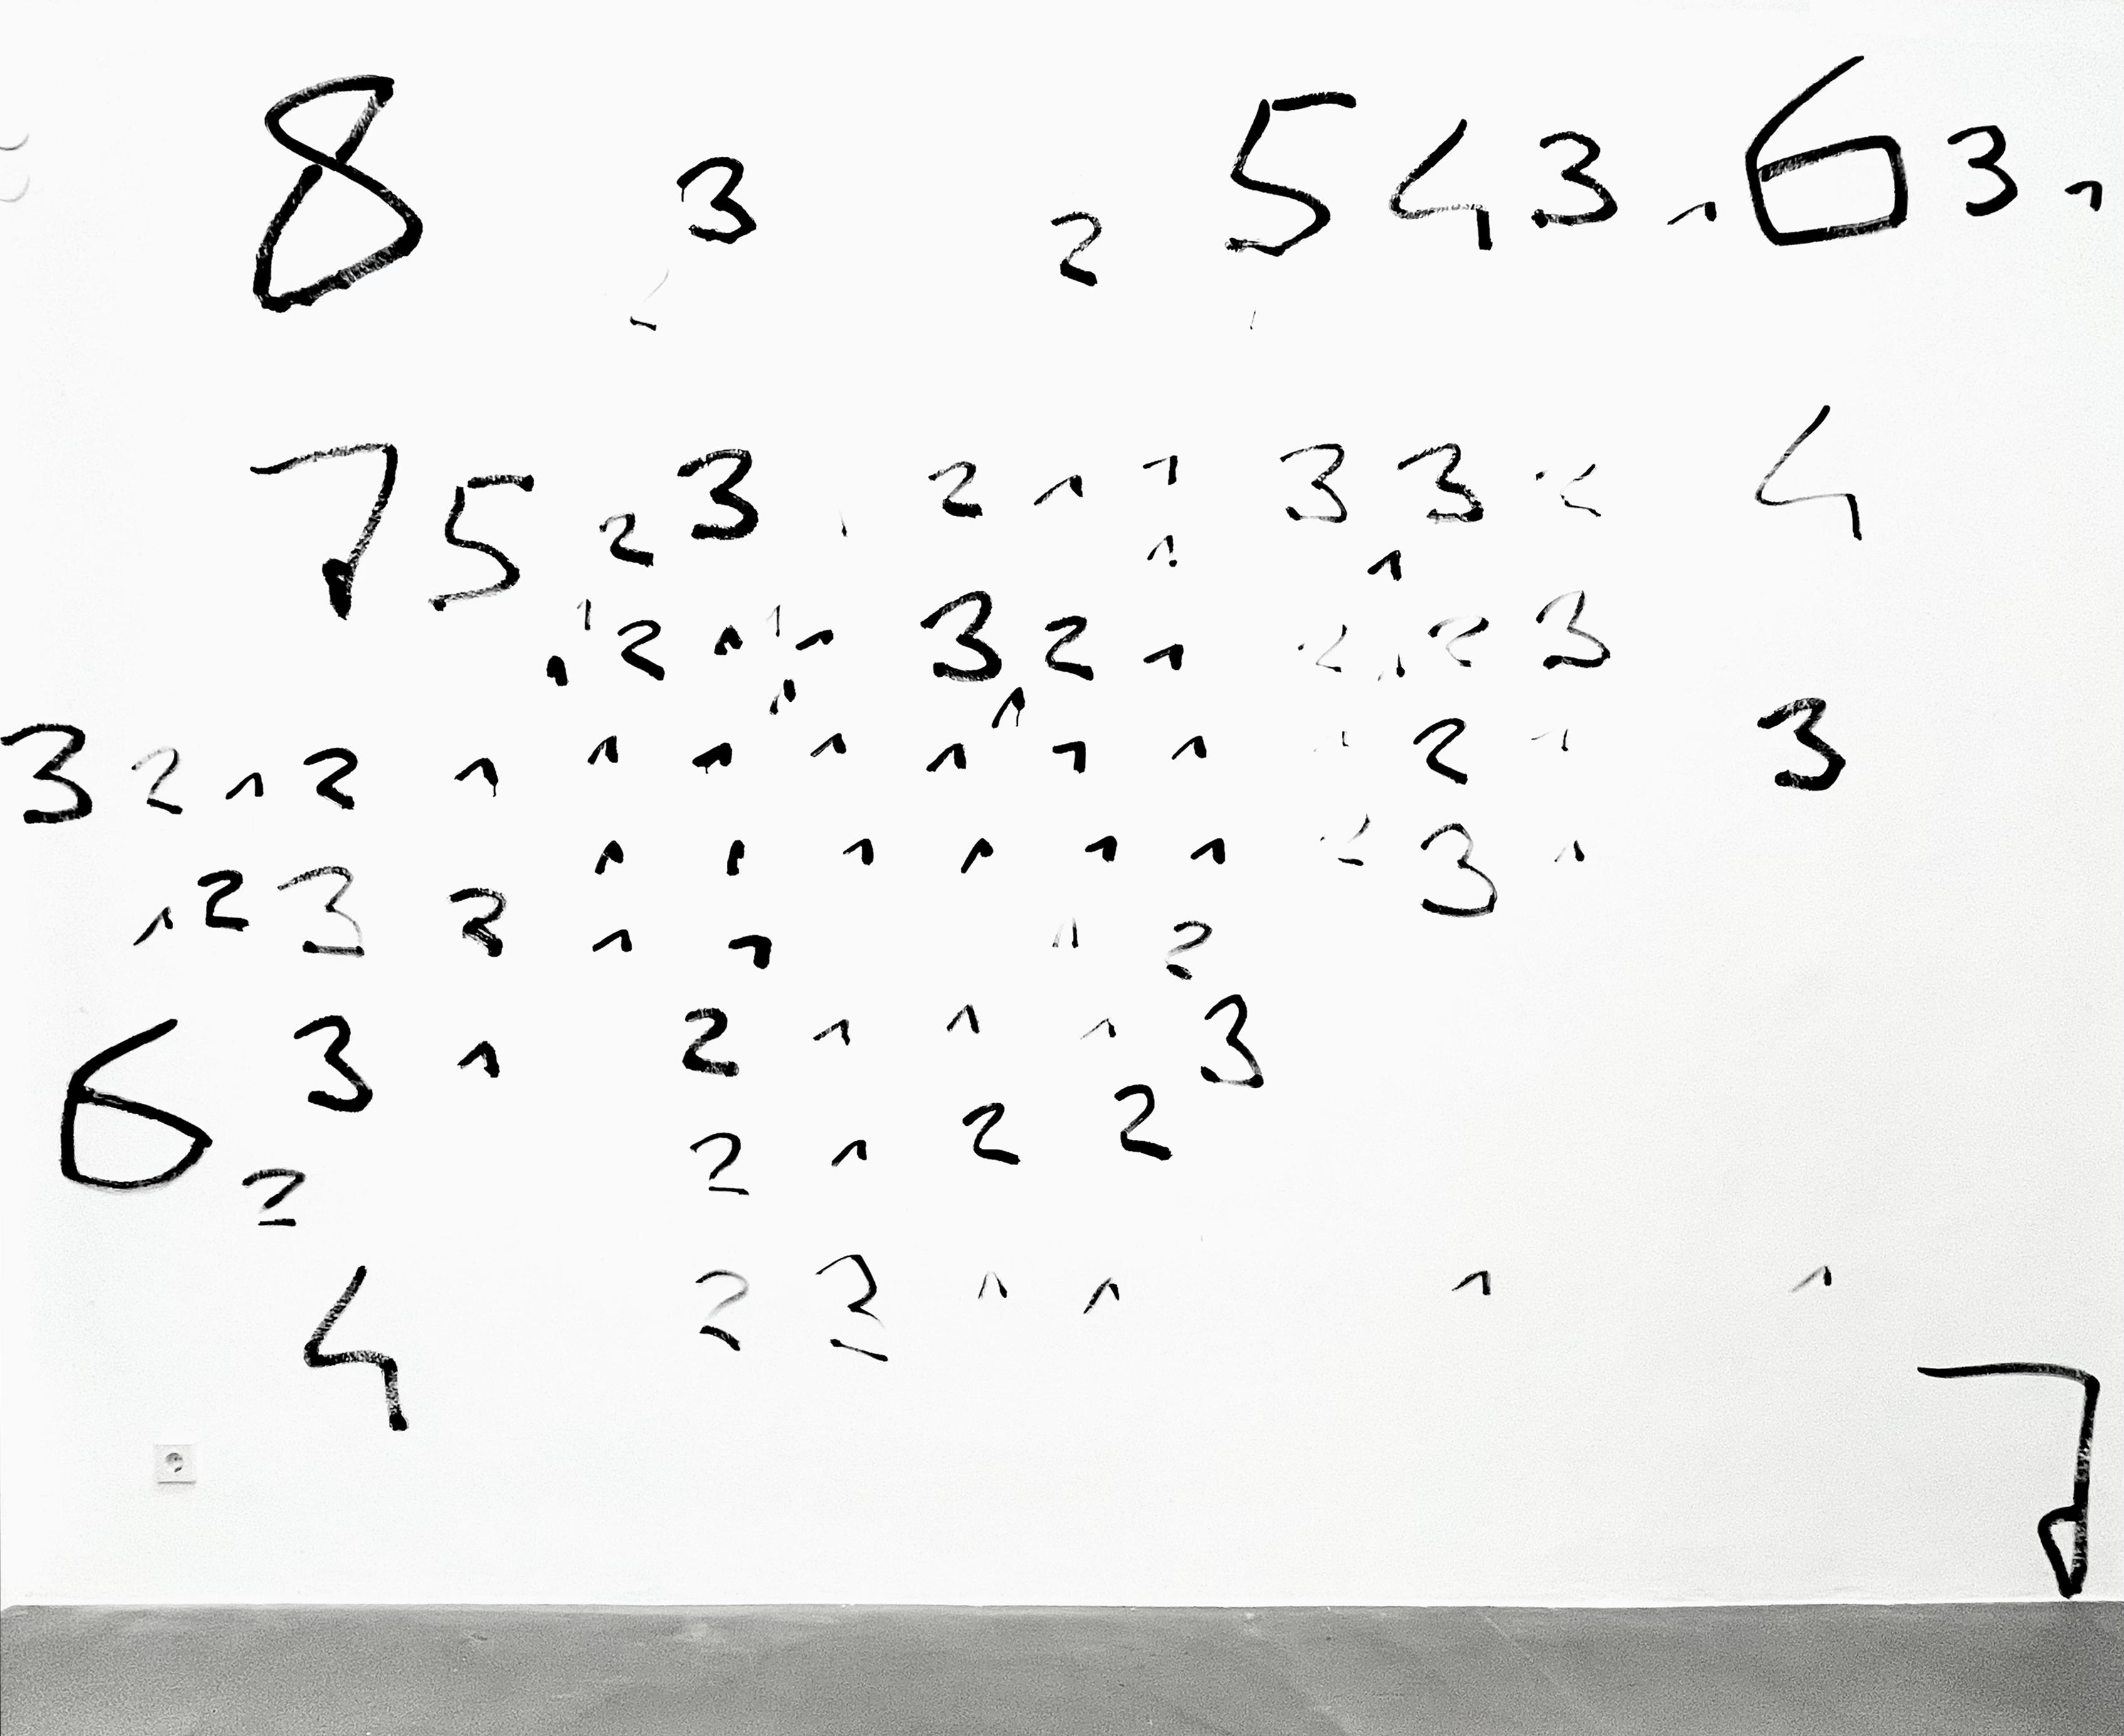 8 3 2 5 4 3 1 6 3 1
7 5 2 3 1 2 1 1 3 3 2 4
1 1
1 2 1 1 3 2 1 2 1 2 3
1 1
3 2 1 2 1 1 1 1 1 1 1 1 2 1 3
1 1 1 1 1 1 2 3 1
1 2 3 2 1 1 1 2
6 3 1 2 1 1 1 3
2 2 1 2 2
4 2 3 1 1 1 1
7